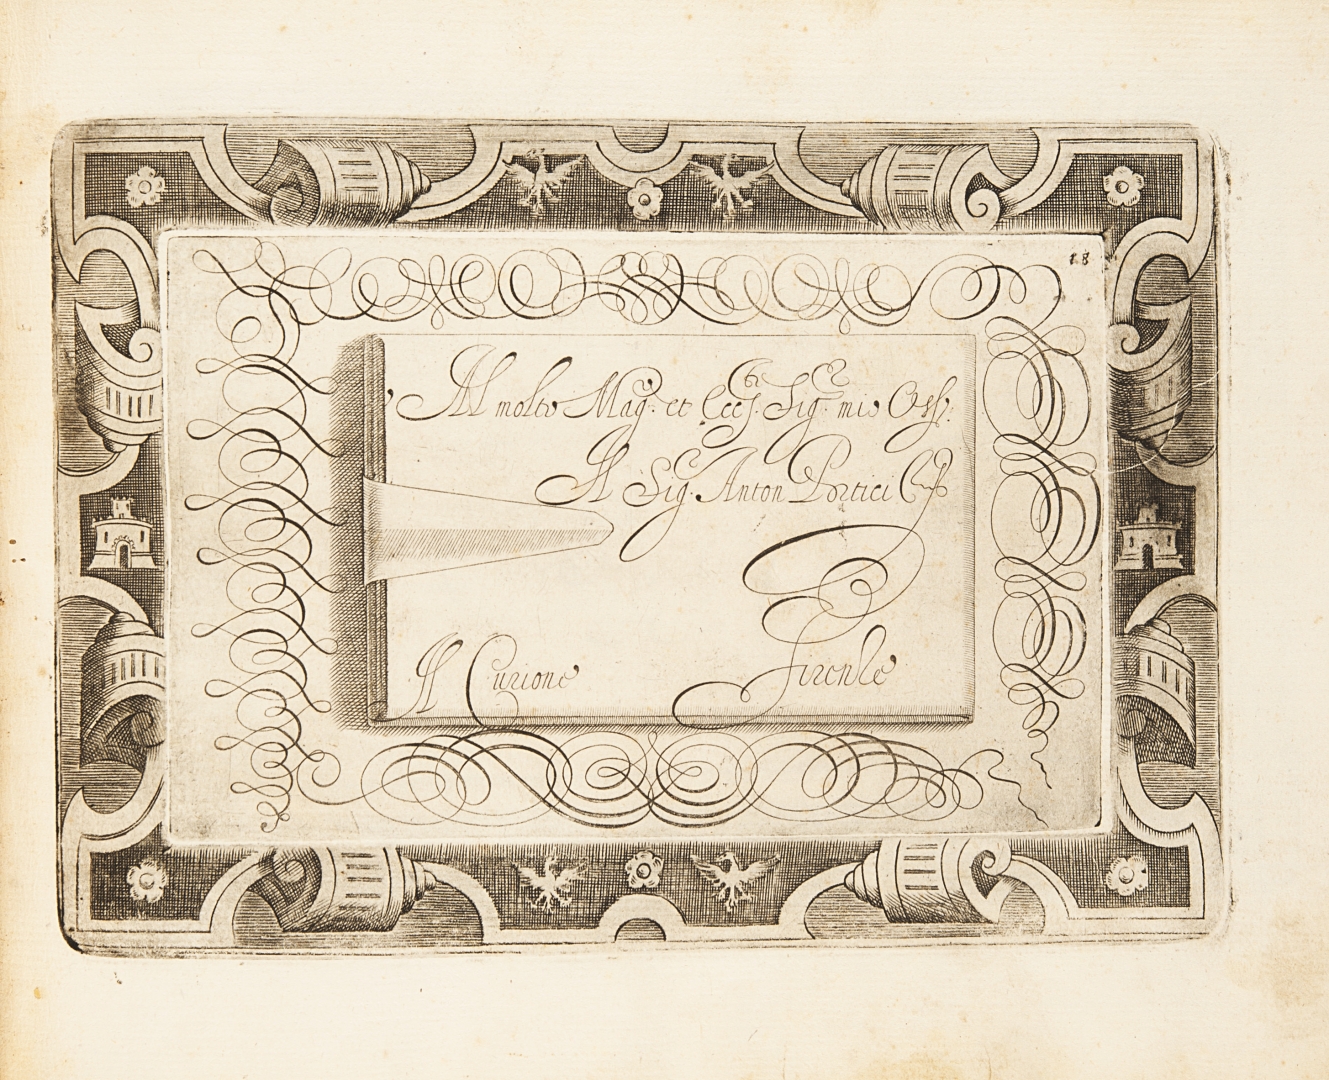 18
Al molto Mag.co et Ecc.te Sig.re mio Oss.
Il Sig.re Anton Portici
Il Curione
Firenze